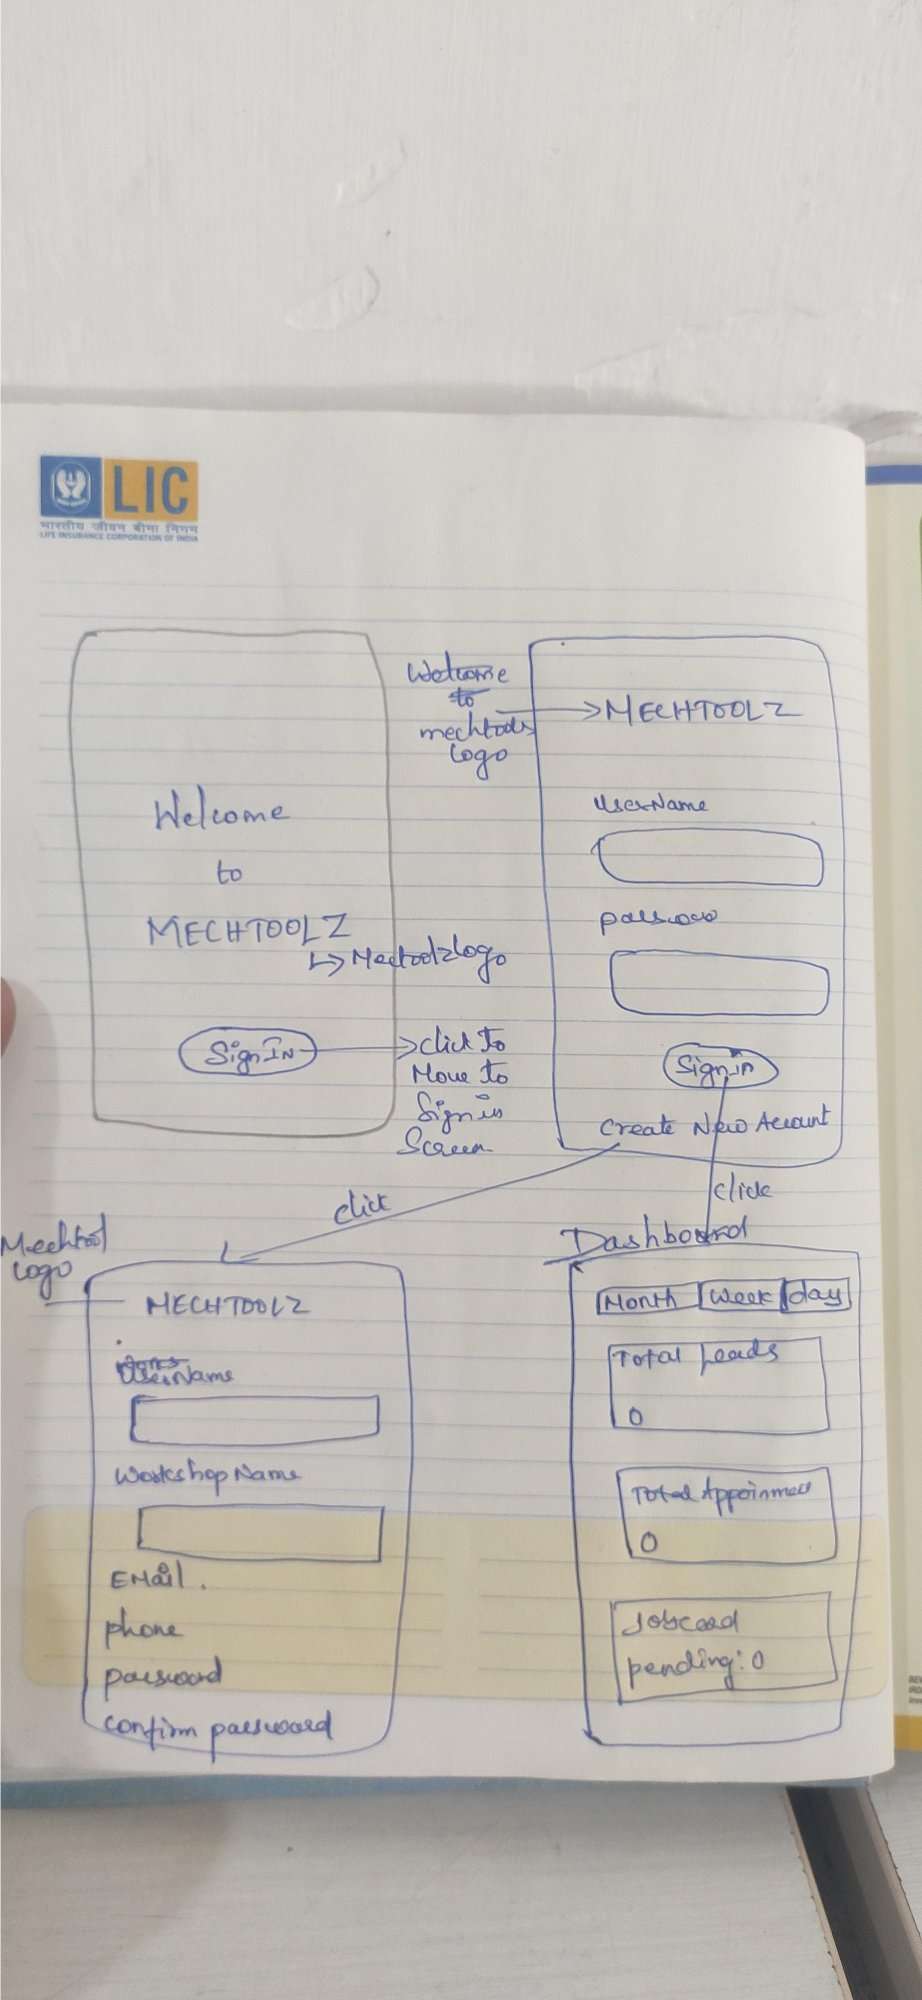 LIC
भारतीय जीवन बीमा निगम
LIFE INSURANCE CORPORATION OF INDIA
Welcome
to
MECHTOOLZ
↳ Mectoolzlogo
SignIN
click to
Move to
Sign in
Screen
Welcome
to
mechtools
logo
MECHTOOLZ
UserName
password
Sign in
Create New Account
click
click
Mechtool
logo
MECHTOOLZ
UserName
Workshop Name
EMail.
phone
password
confirm password
Dashboard
Month Week day
Total Leads
0
Total Appoinmen
0
Jobcard
pending: 0